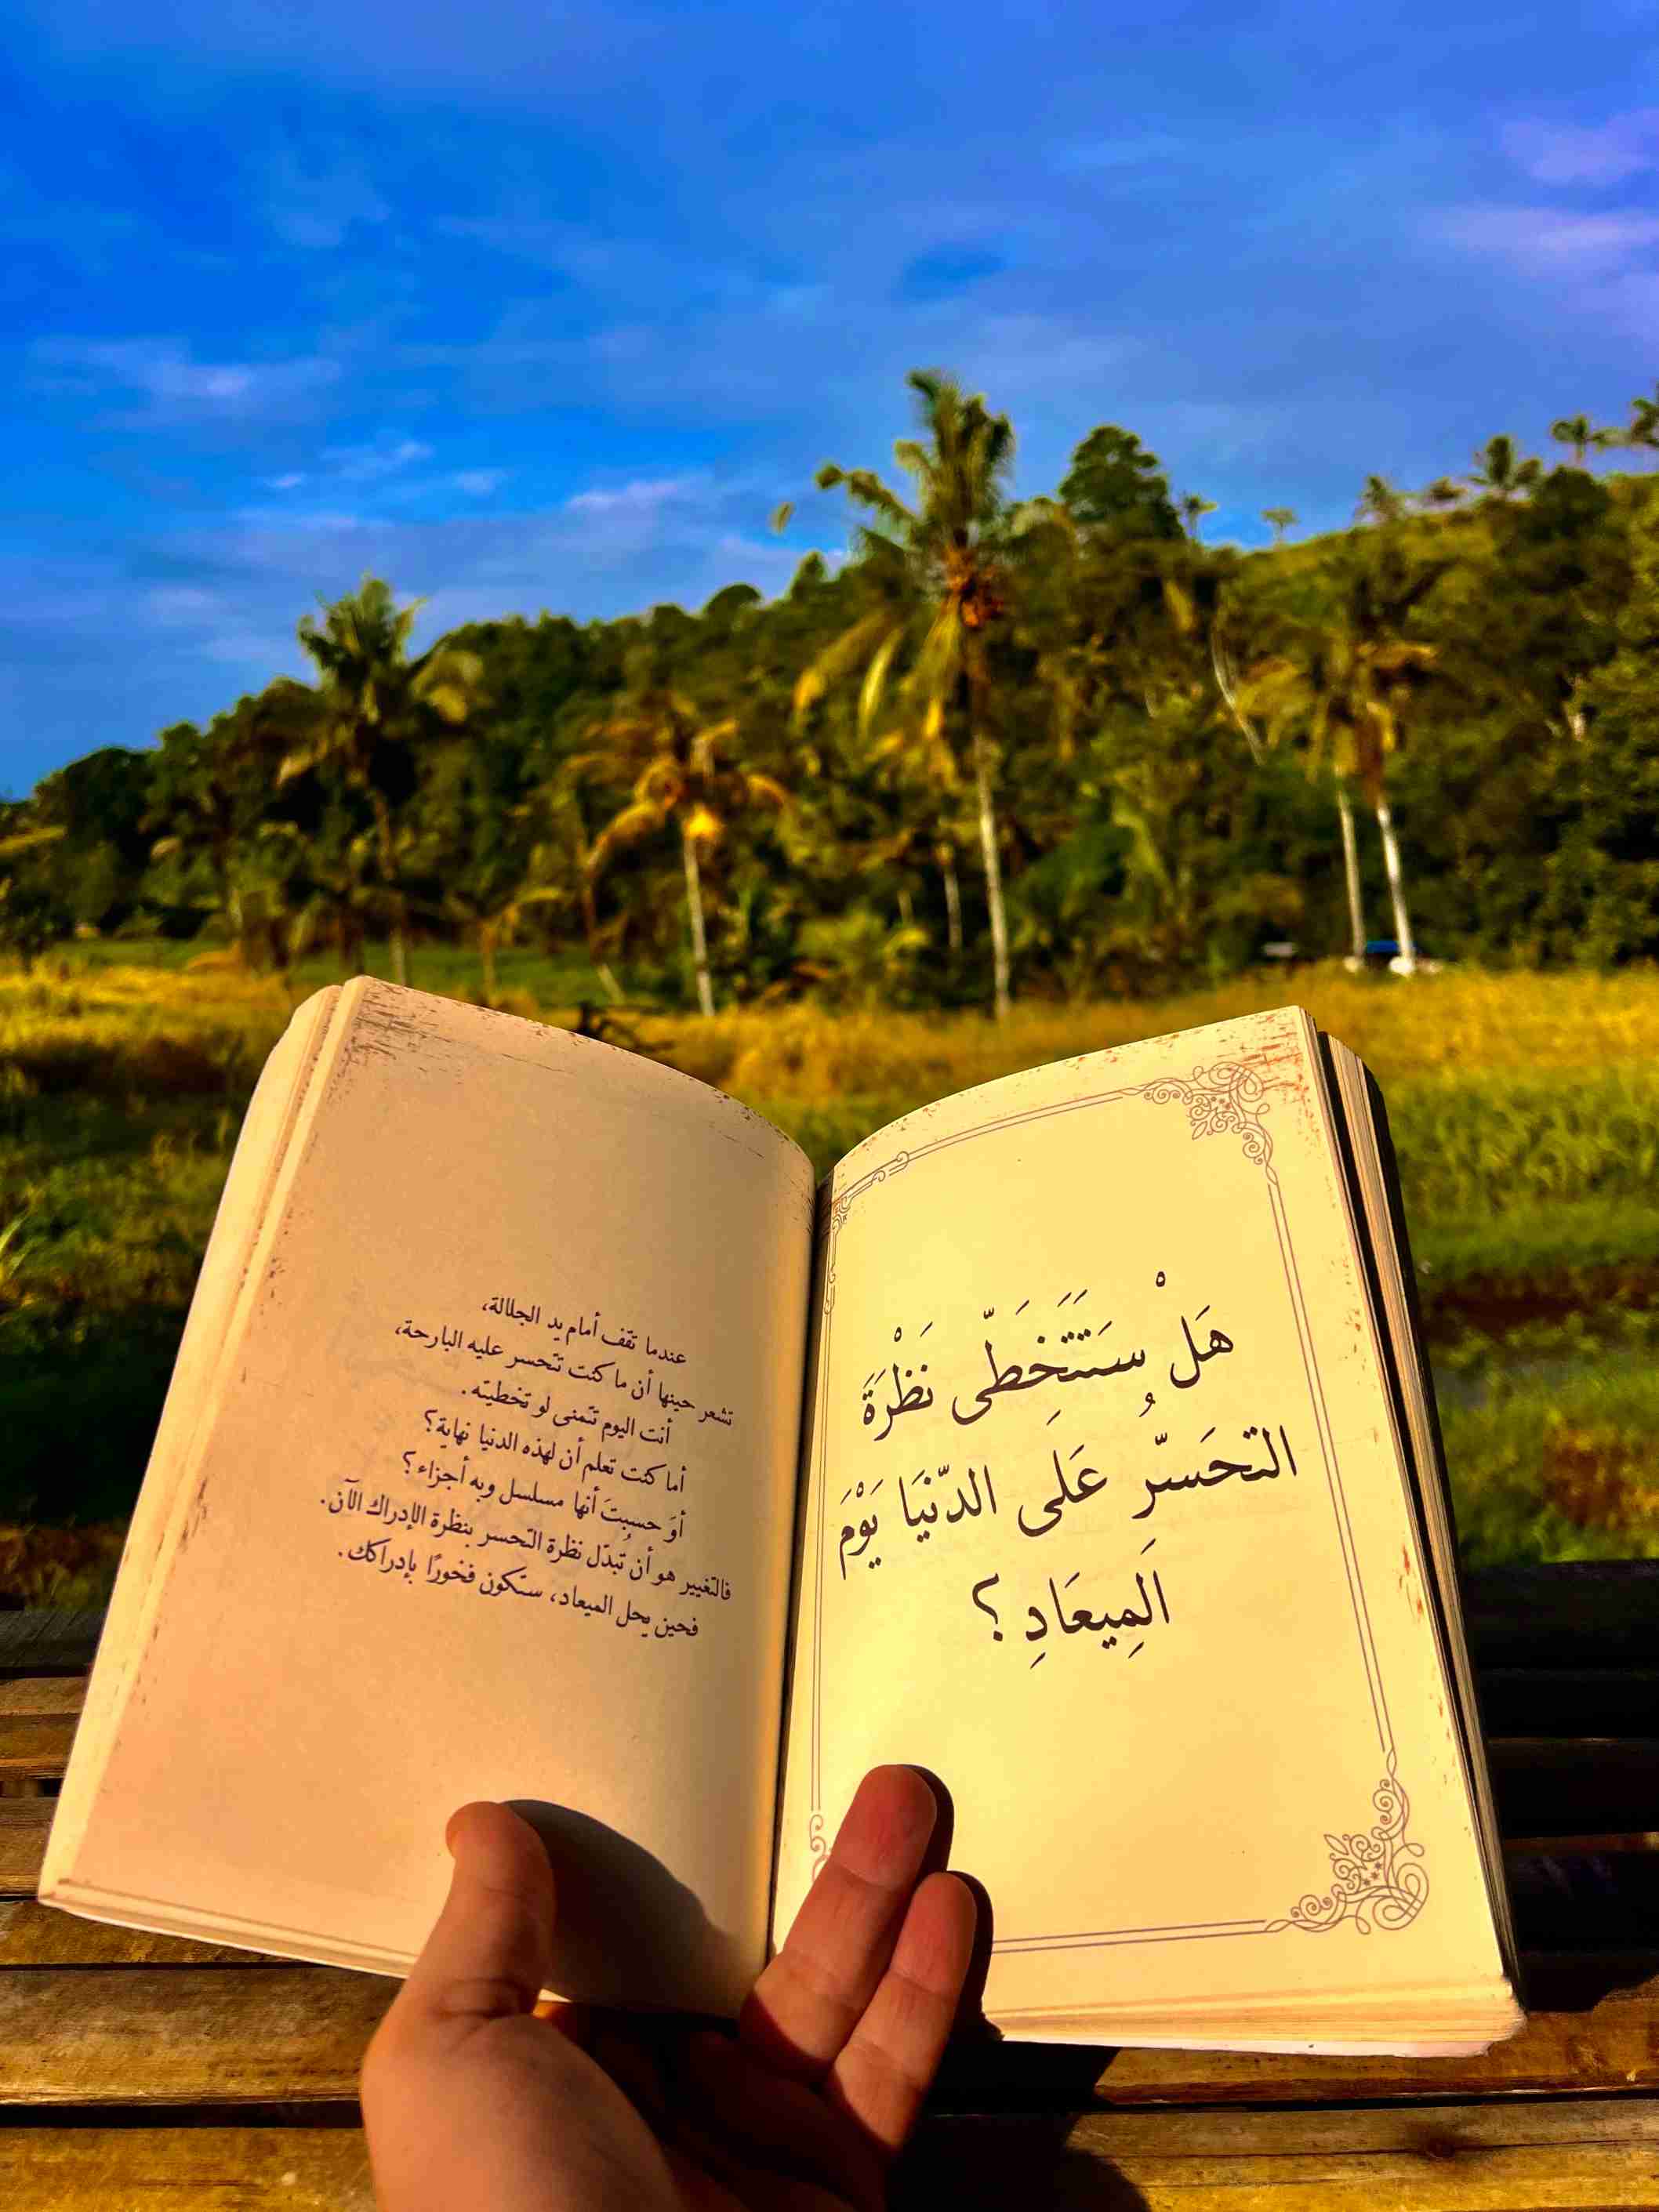 هَلْ سَتَتَخَطّى نَظْرَةَ
التحَسّرُ عَلَى الدّنيَا يَوْمَ
الَمِيعَادِ ؟
عندما تقف أمام يد الجلالة،
تشعر حينها أن ما كنت تتحسر عليه البارحة،
أنت اليوم تتمنى لو تخطيته.
أما كنت تعلم أن لهذه الدنيا نهاية؟
أوَ حسبتَ أنها مسلسل وبه أجزاء؟
فالتغيير هو أن تُبدّل نظرة التحسر بنظرة الإدراك الآن.
فحين يحل الميعاد، ستكون فخورًا بإدراكك.